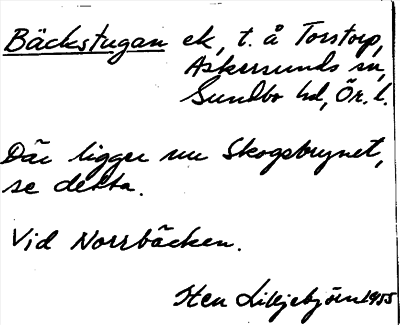 Bäckstugan ek, t. å Torstorp,
Askersunds sn,
Sundbo hd, Ör. l.
Där ligger nu Skogsbrynet,
se detta.
Vid Norrbäcken.
Sten Liljebjörn 1955